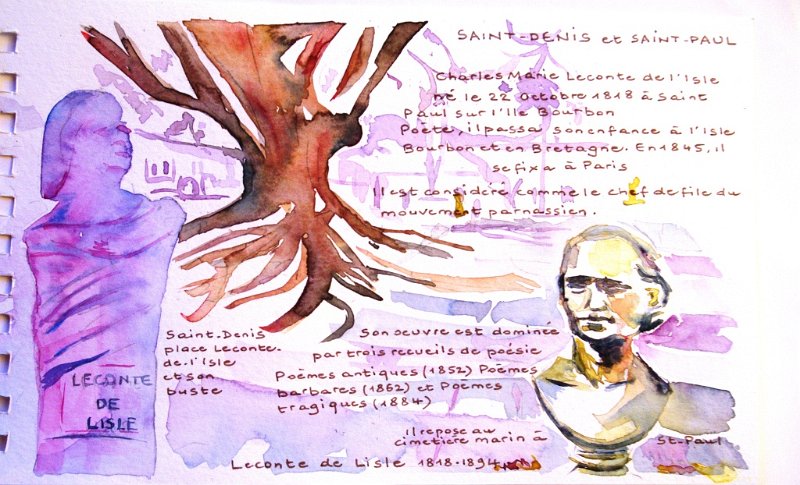 SAINT-DENIS et SAINT-PAUL
Charles Marie Leconte de l'Isle
né le 22 Octobre 1818 à Saint
Paul sur l'Ile Bourbon
Poète, il passa son enfance à l'Isle
Bourbon et en Bretagne. En 1845, il
se fixa à Paris
Il est considéré comme le chef de file du
mouvement parnassien.
Saint-Denis
place Leconte.
de.l'Isle
et son
buste
LECONTE
DE
LISLE
Son oeuvre est dominée
par trois recueils de poésie
Poèmes antiques (1852) Poèmes
barbares (1862) et Poèmes
tragiques (1884)
Il repose au
cimetière marin à
St-Paul
Leconte de Lisle 1818-1894